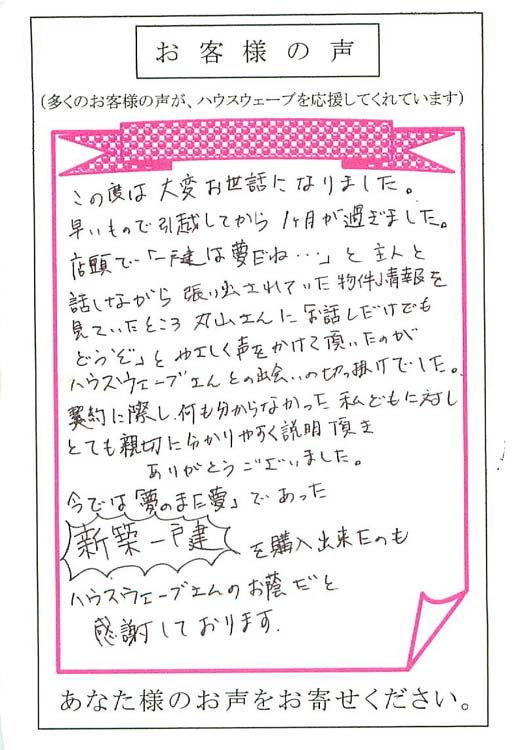 お客様の声
(多くのお客様の声が、ハウスウェーブを応援してくれています)
この度は大変お世話になりました。
早いもので引越してから1ヶ月が過ぎました。
店頭で「一戸建は夢だね…」と主人と
話しながら張り出されていた物件情報を
見ていたところ丸山さんに「お話しだけでも
どうぞ」とやさしく声をかけて頂いたのが
ハウスウェーブさんとの出会いの切っ掛けでした。
契約に際し、何も分からなかった私どもに対し
とても親切に分かりやすく説明頂き
ありがとうございました。
今では「夢のまた夢」であった
新築一戸建を購入出来たのも
ハウスウェーブさんのお蔭だと
感謝しております。
あなた様のお声をお寄せください。